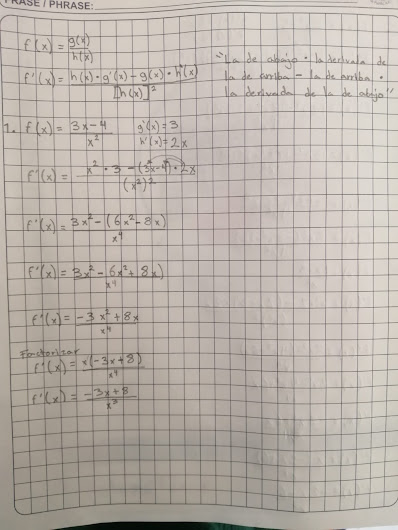 FRASE / PHRASE:
f(x) = g(x)/h(x)
f'(x) = h(x)·g'(x) - g(x)·h'(x) / [h(x)]²
"La de abajo · la derivada de
la de arriba - la de arriba ·
la derivada de la de abajo"
1. f(x) = 3x-4 / x²
g'(x) = 3
h'(x) = 2x
f'(x) = x² · 3 - (3x-4) · 2x / (x²)²
f'(x) = 3x² - (6x² - 8x) / x⁴
f'(x) = 3x² - 6x² + 8x) / x⁴
f'(x) = -3x² + 8x / x⁴
Factorizar
f'(x) = x(-3x+8) / x⁴
f'(x) = -3x+8 / x³